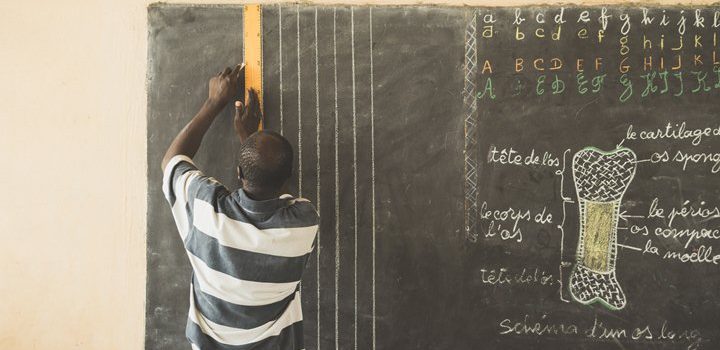 a b c d e f g h i j k l
a b c d e f g h i j k l
A B C D E F G H I J K L
A C D E F G H I J K L
le cartilage d
tête de l'os
os spong
le corps de l'os
le périos
os compac
la moelle
tête de l'os
Schéma d'un os long